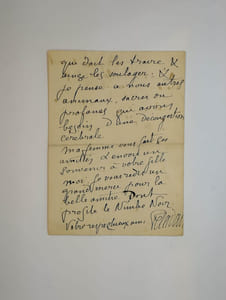 qui doit les traire &
les soulager. &
je pense à nous autres
animaux, sacrés ou
profanes qui avions
besoin d'une decongestion
cerebrale
ma femme vous fait ses
amitiés & envoie un
souvenir à votre fille
moi je vous redis un
grand merci pour la
belle amitié dont
profite le Nimbe Noir
Votre respectueux ami